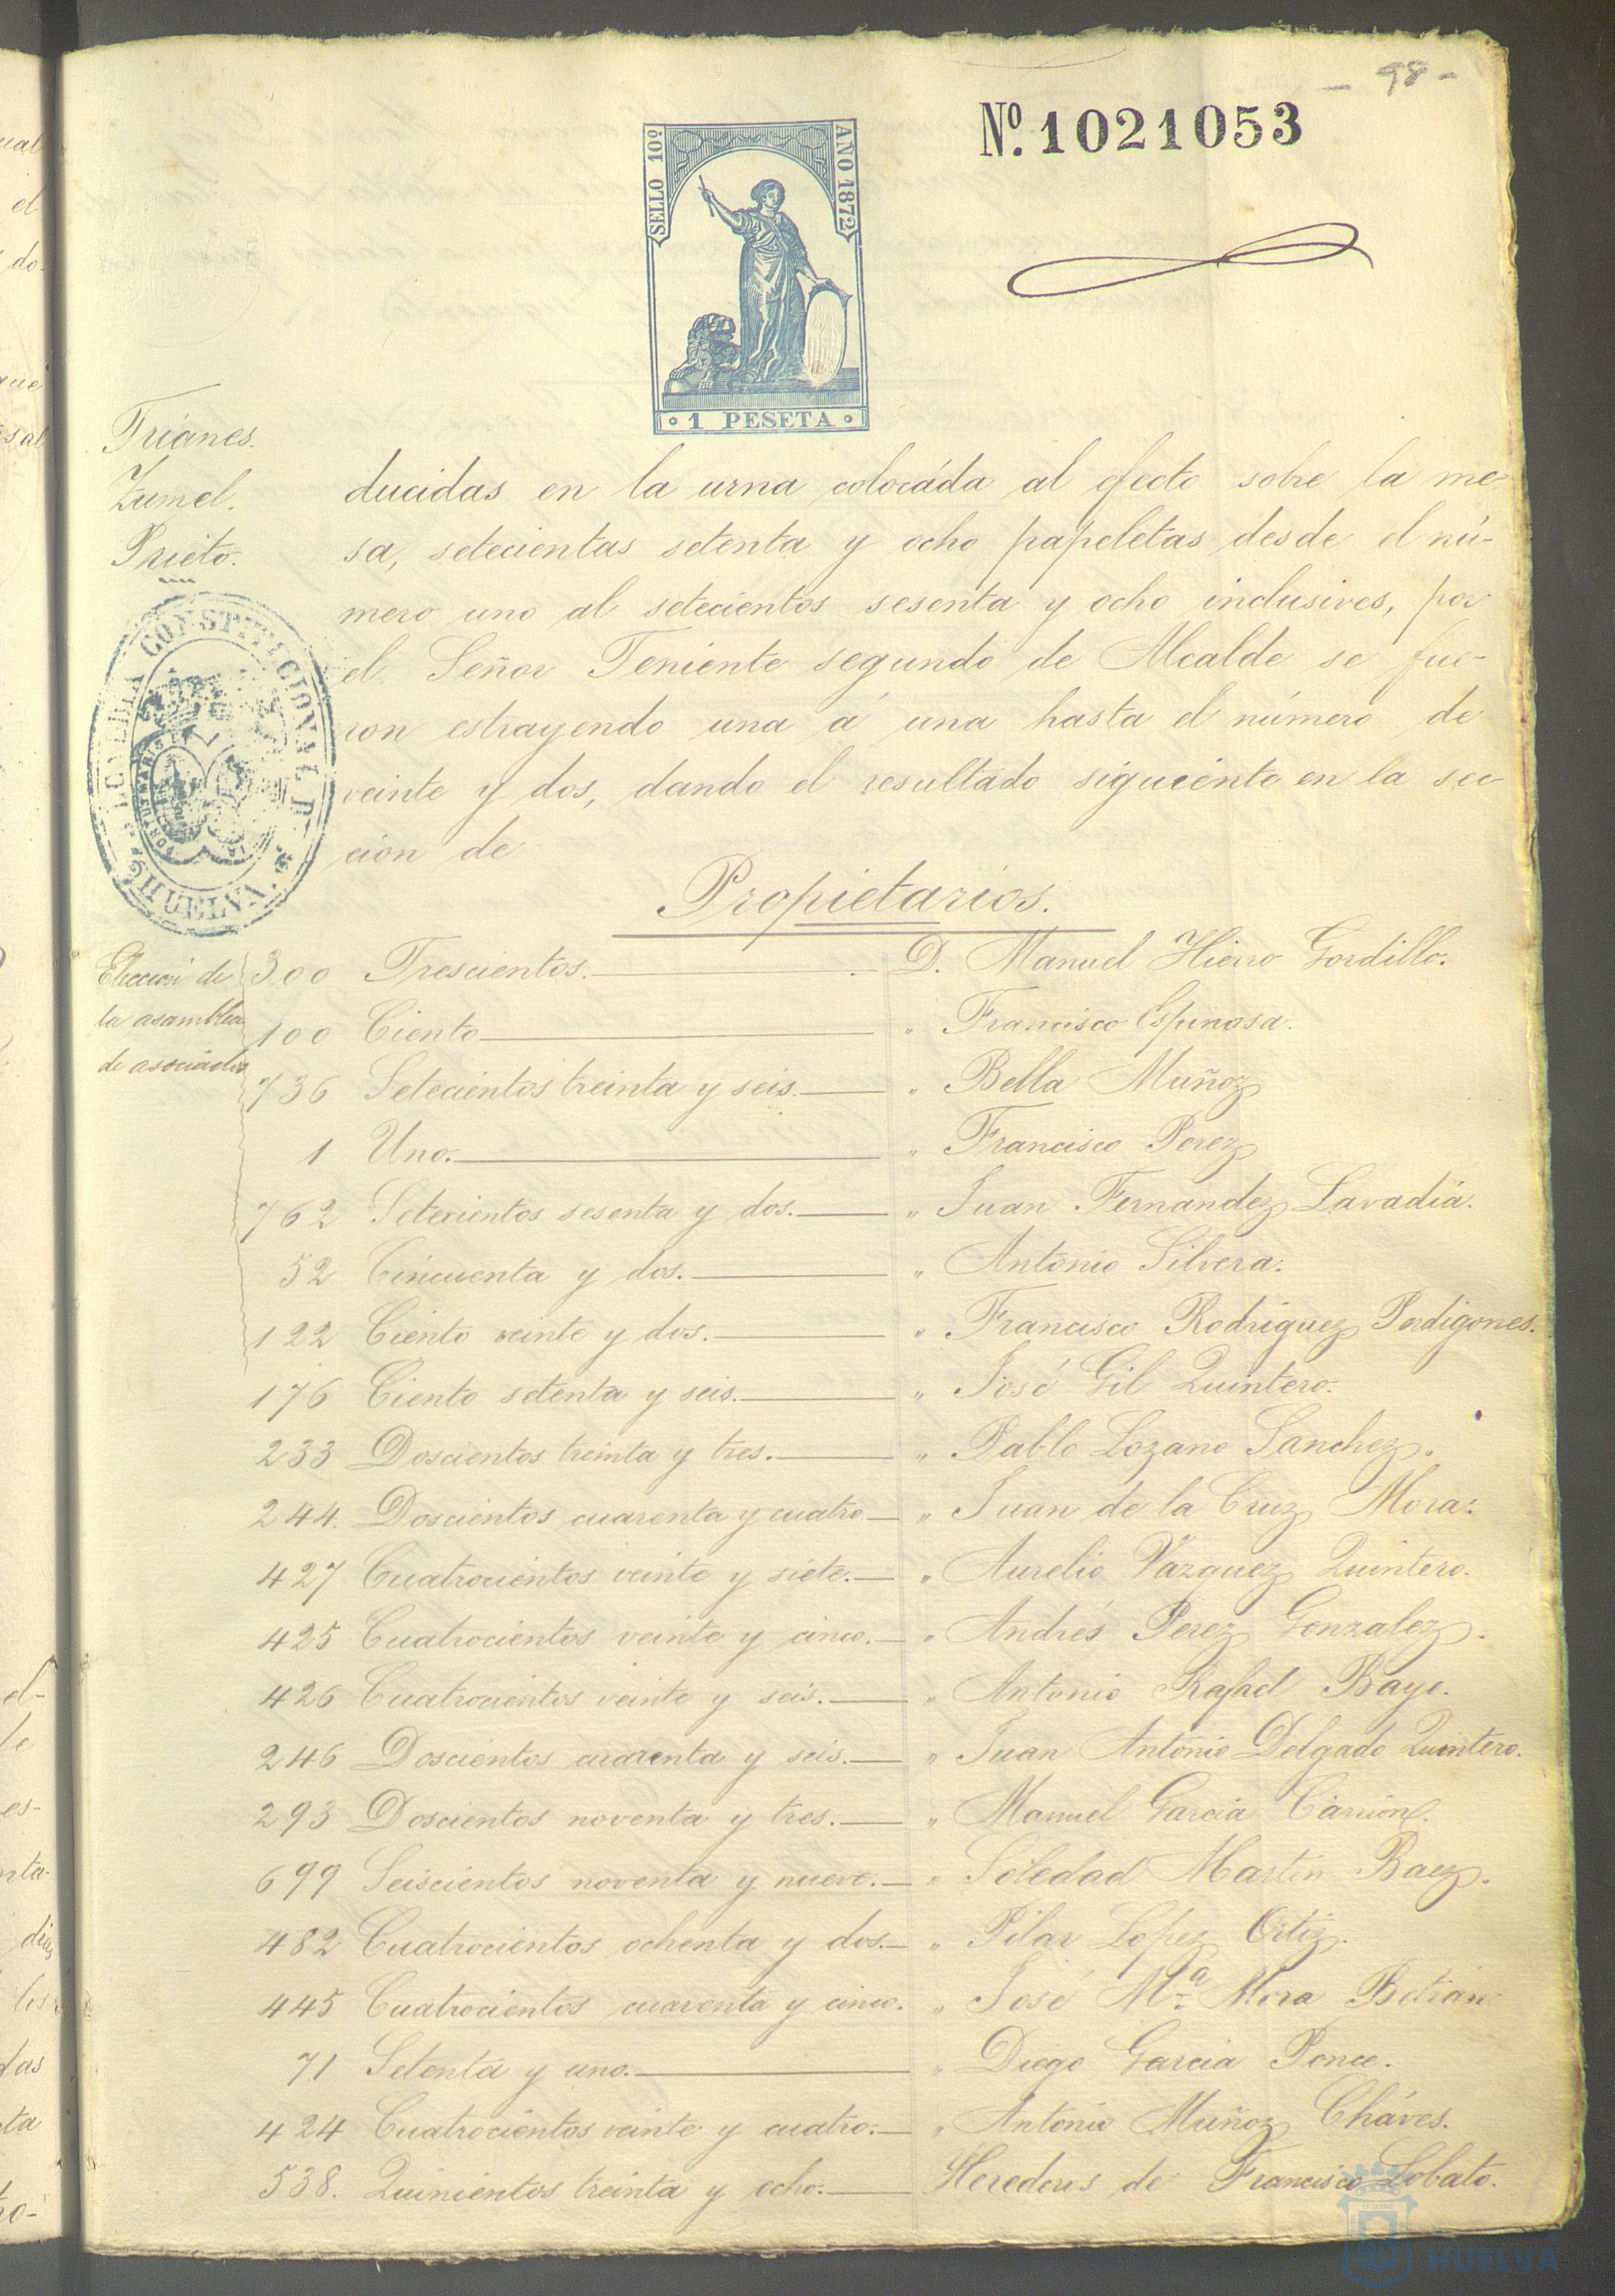 - 98 -
Nº. 1021053
SELLO 10º
AÑO 1872
1 PESETA
Trianes.
Zumel.
Prieto.
ducidas en la urna colocáda al efecto sobre la me-
sa, setecientas setenta y ocho papeletas desde el nú-
mero uno al setecientos sesenta y ocho inclusives, por
el Señor Teniente segundo de Alcalde se fue-
ron estrayendo una á una hasta el número de
veinte y dos, dando el resultado siguiente en la sec-
cion de
ALCALDIA CONSTITUCIONAL DE HUELVA
Propietarios.
Eleccion de
la asamblea
de asociados
300 Trescientos. D. Manuel Hierro Gordillo.
100 Ciento " Francisco Espinosa.
736 Setecientos treinta y seis. " Bella Muñoz
1 Uno. " Francisco Perez
762 Setecientos sesenta y dos. " Juan Fernandez Lavadiá.
52 Cincuenta y dos. " Antonio Silvera.
122 Ciento veinte y dos. " Francisco Rodriguez Perdigones.
176 Ciento setenta y seis. " José Gil Quintero.
233 Doscientos treinta y tres. " Pablo Lozano Sanchez.
244. Doscientos cuarenta y cuatro " Juan de la Cruz Mora.
427 Cuatrocientos veinte y siete. " Aurelio Vazquez Quintero.
425 Cuatrocientos veinte y cinco. " Andrés Perez Gonzalez.
426 Cuatrocientos veinte y seis. " Antonio Rafael Bayo.
246 Doscientos cuarenta y seis. " Juan Antonio Delgado Quintero.
293 Doscientos noventa y tres. " Manuel Garcia Carrion.
699 Seiscientos noventa y nueve. " Soledad Martin Baez.
482 Cuatrocientos ochenta y dos. " Pilar Lopez Ortiz.
445 Cuatrocientos cuarenta y cinco. " José Mª Mora Betrian
71 Setenta y uno. " Diego Garcia Ponce.
424 Cuatrocientos veinte y cuatro. " Antonio Muñoz Cháves.
538. Quinientos treinta y ocho. Herederos de Francisco Lobato.
HUELVA